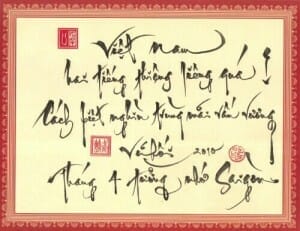 Việt Nam
hai tiếng thiêng liêng quá!
Cách biệt nghìn trùng mãi vấn vương
Võ Hội 2010
Tháng 4 tưởng nhớ Saigon